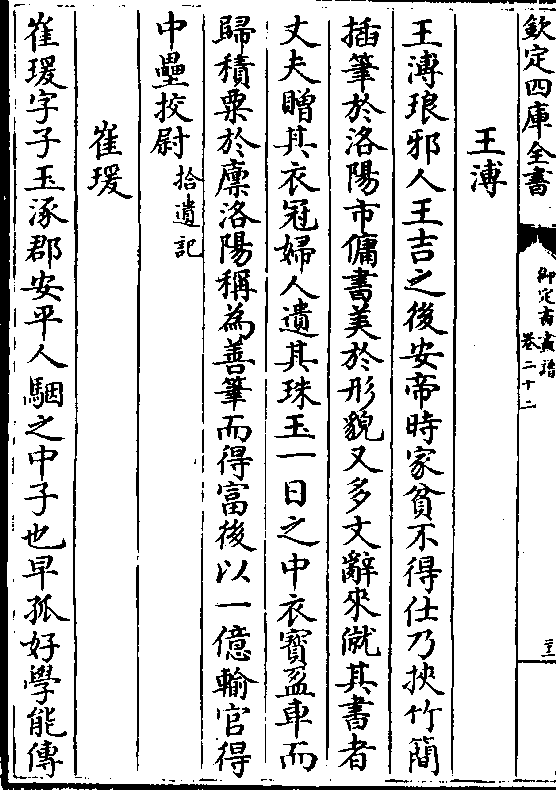 欽定四庫全書
御定書畫譜
卷二十二
王溥
王溥琅邪人王吉之後安帝時家貧不得仕乃挾竹簡
插筆於洛陽市傭書美於形貌又多文辭來僦其書者
丈夫贈其衣冠婦人遺其珠玉一日之中衣寶盈車而
歸積粟於廩洛陽稱為善筆而得富後以一億輸官得
中壘挍尉拾遺記
崔瑗
崔瑗字子玉涿郡安平人駰之中子也早孤好學能傳